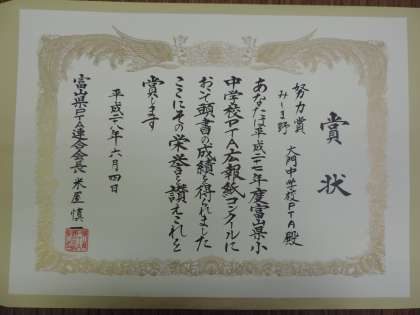 賞状
努力賞
みしま野 大門中学校PTA殿
あなたは平成二十七年度富山県小
中学校PTA広報紙コンクールに
おいて頭書の成績を得られました
ここにその栄誉を讃えこれを
賞します
平成二十八年六月四日
富山県PTA連合会長 米屋慎一